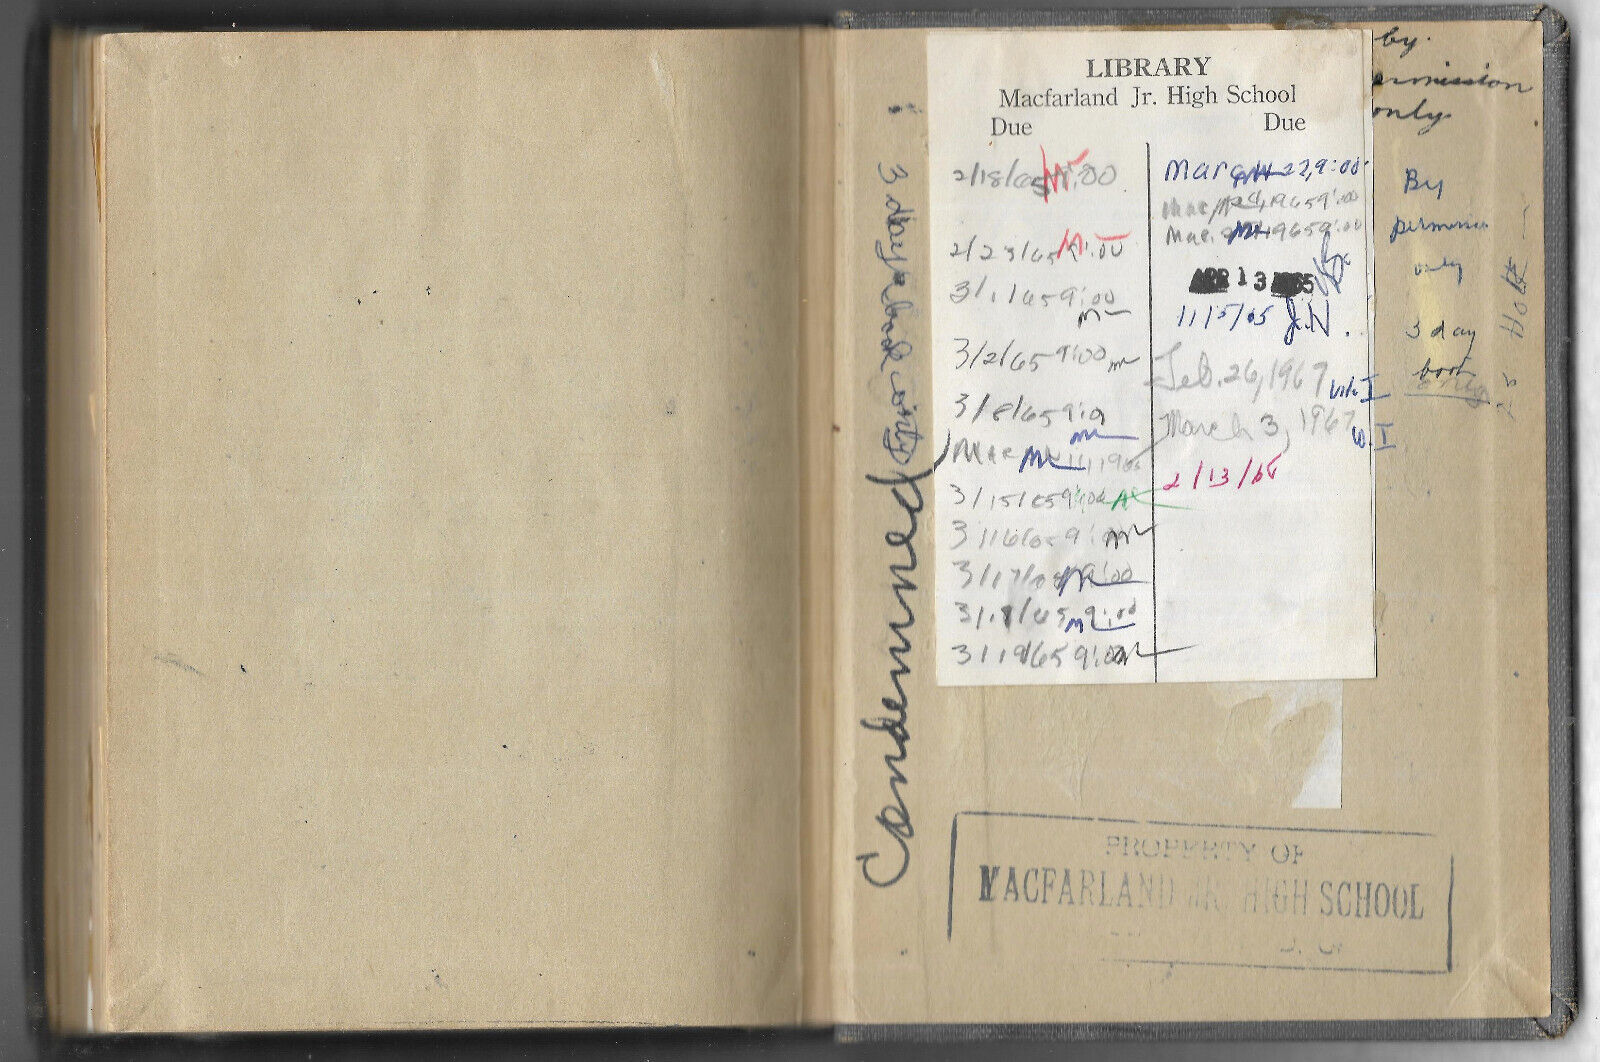 LIBRARY
Macfarland Jr. High School
Due
Due
2/18/65 9:00
2/23/65 9:00
3/1/65 9:00
3/2/65 9:00
3/8/65 9:0
Mar 11, 1965
3/15/65 9:00
3/16/65 9:00
3/17/65 9:00
3/18/65 9:00
3/19/65 9:00
March 22, 9:00
Mar 1965 9:00
Mar. 1965 9:00
APR 13 1965
11/5/65 J.N.
Feb. 26, 1967
March 3, 1967 W.I
2/13/68
by
permission
only
By
permission
only
3 day
book
only
3 day book only
Condemned
PROPERTY OF
MACFARLAND JR. HIGH SCHOOL
D. C.